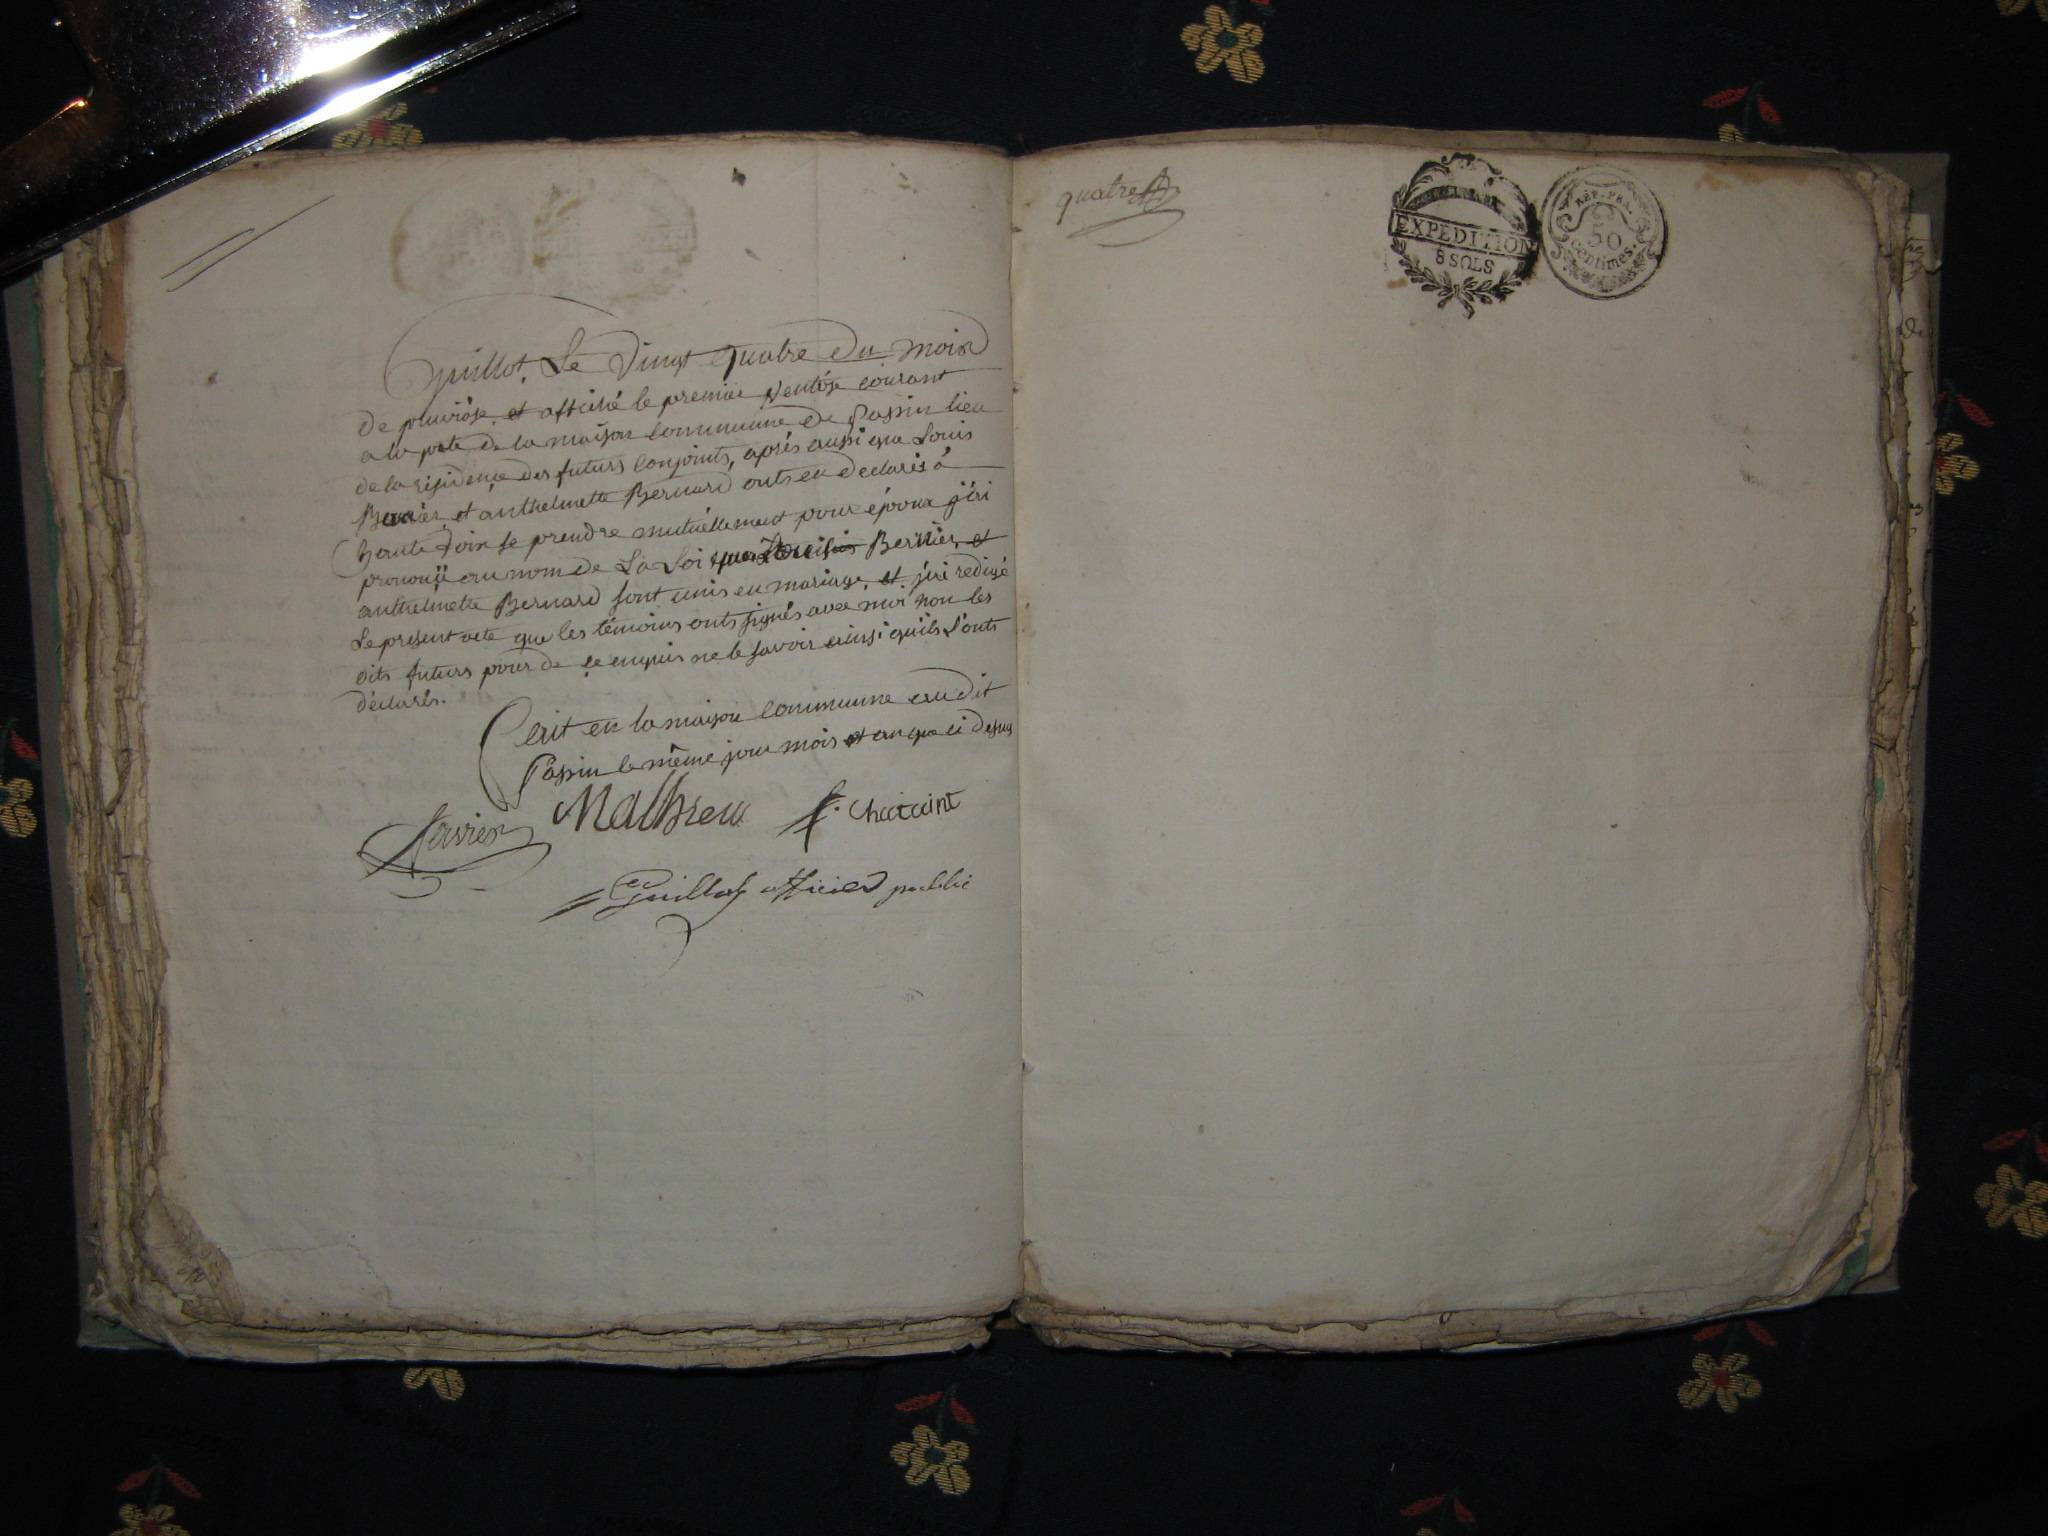 Guillot, Le vingt quatre du mois
de pluviôse, et affiché le premier ventôse courant
a la porte de la maison commune de passin lieu
de la residence des futurs conjoints, aprés aussi que Louis
Bernier, et anthelmette Bernard onts eu declarés à
haute voix se prendre mutuéllement pour époux j'ai
prononçé au nom de La Loi que Louis Bernier, et
anthelmette Bernard sont unis en mariage, et j'ai redigé
Le present acte que les témoins onts signés avec moi non les
dits futurs pour de ce enquis ne le savoir ainsi quils L'onts
déclarés.
Ecrit en la maison commune au dit
Passin le même jour mois et an que ci dessus
Mathieu
Guillot officier public
quatre
EXPEDITION
8 SOLS
RÉP. FRA.
50
centimes.